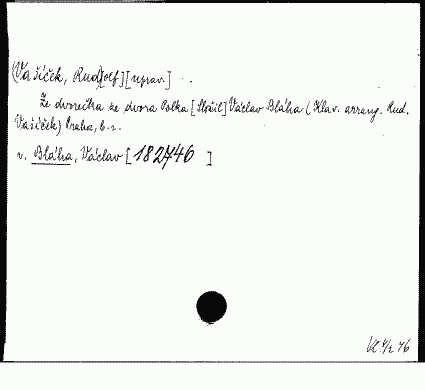 (Vašíček, Rud)[olf] [uprav.]
Ze dvorečka ze dvora Polka [Složil] Václav Bláha (Klav. arrang. Rud.
Vašíček) Praha, b. r.
v. Bláha, Václav [182746]